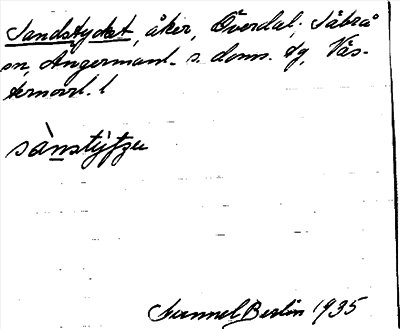 Sandstycket, åker, Överdal, Säbrå
sn, Ångermanl. s. doms. dg, Väs-
ternorrl. l
sànstýtzu
Gunnel Berlin 1935